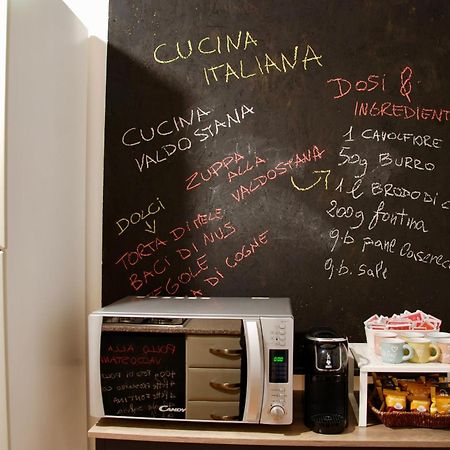 CUCINA
ITALIANA
CUCINA
VALDOSTANA
ZUPPA
ALLA
VALDOSTANA
DOLCI
TORTA DI MELE
BACI DI NUS
TEGOLE
DI COGNE
DOSI &
INGREDIENT
1 CAVOLFIORE
50g BURRO
1 l BRODO DI C
200g fontina
q.b pane Caserec
q.b. sale
CANDY